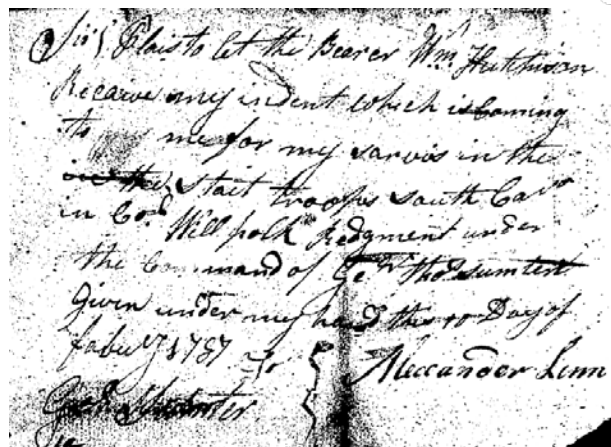 Sir/ Plais to let the Bearer Wm Hutchison
Receive my indent which is Coming
to me for my sarvis in the
in the Stait troops South Caro
in Cod. Will polk Redgment under
the Command of Ge.r Thos. Sumter
Given under my hand this 10 Day of
fabuy 1787
Alexander Linn